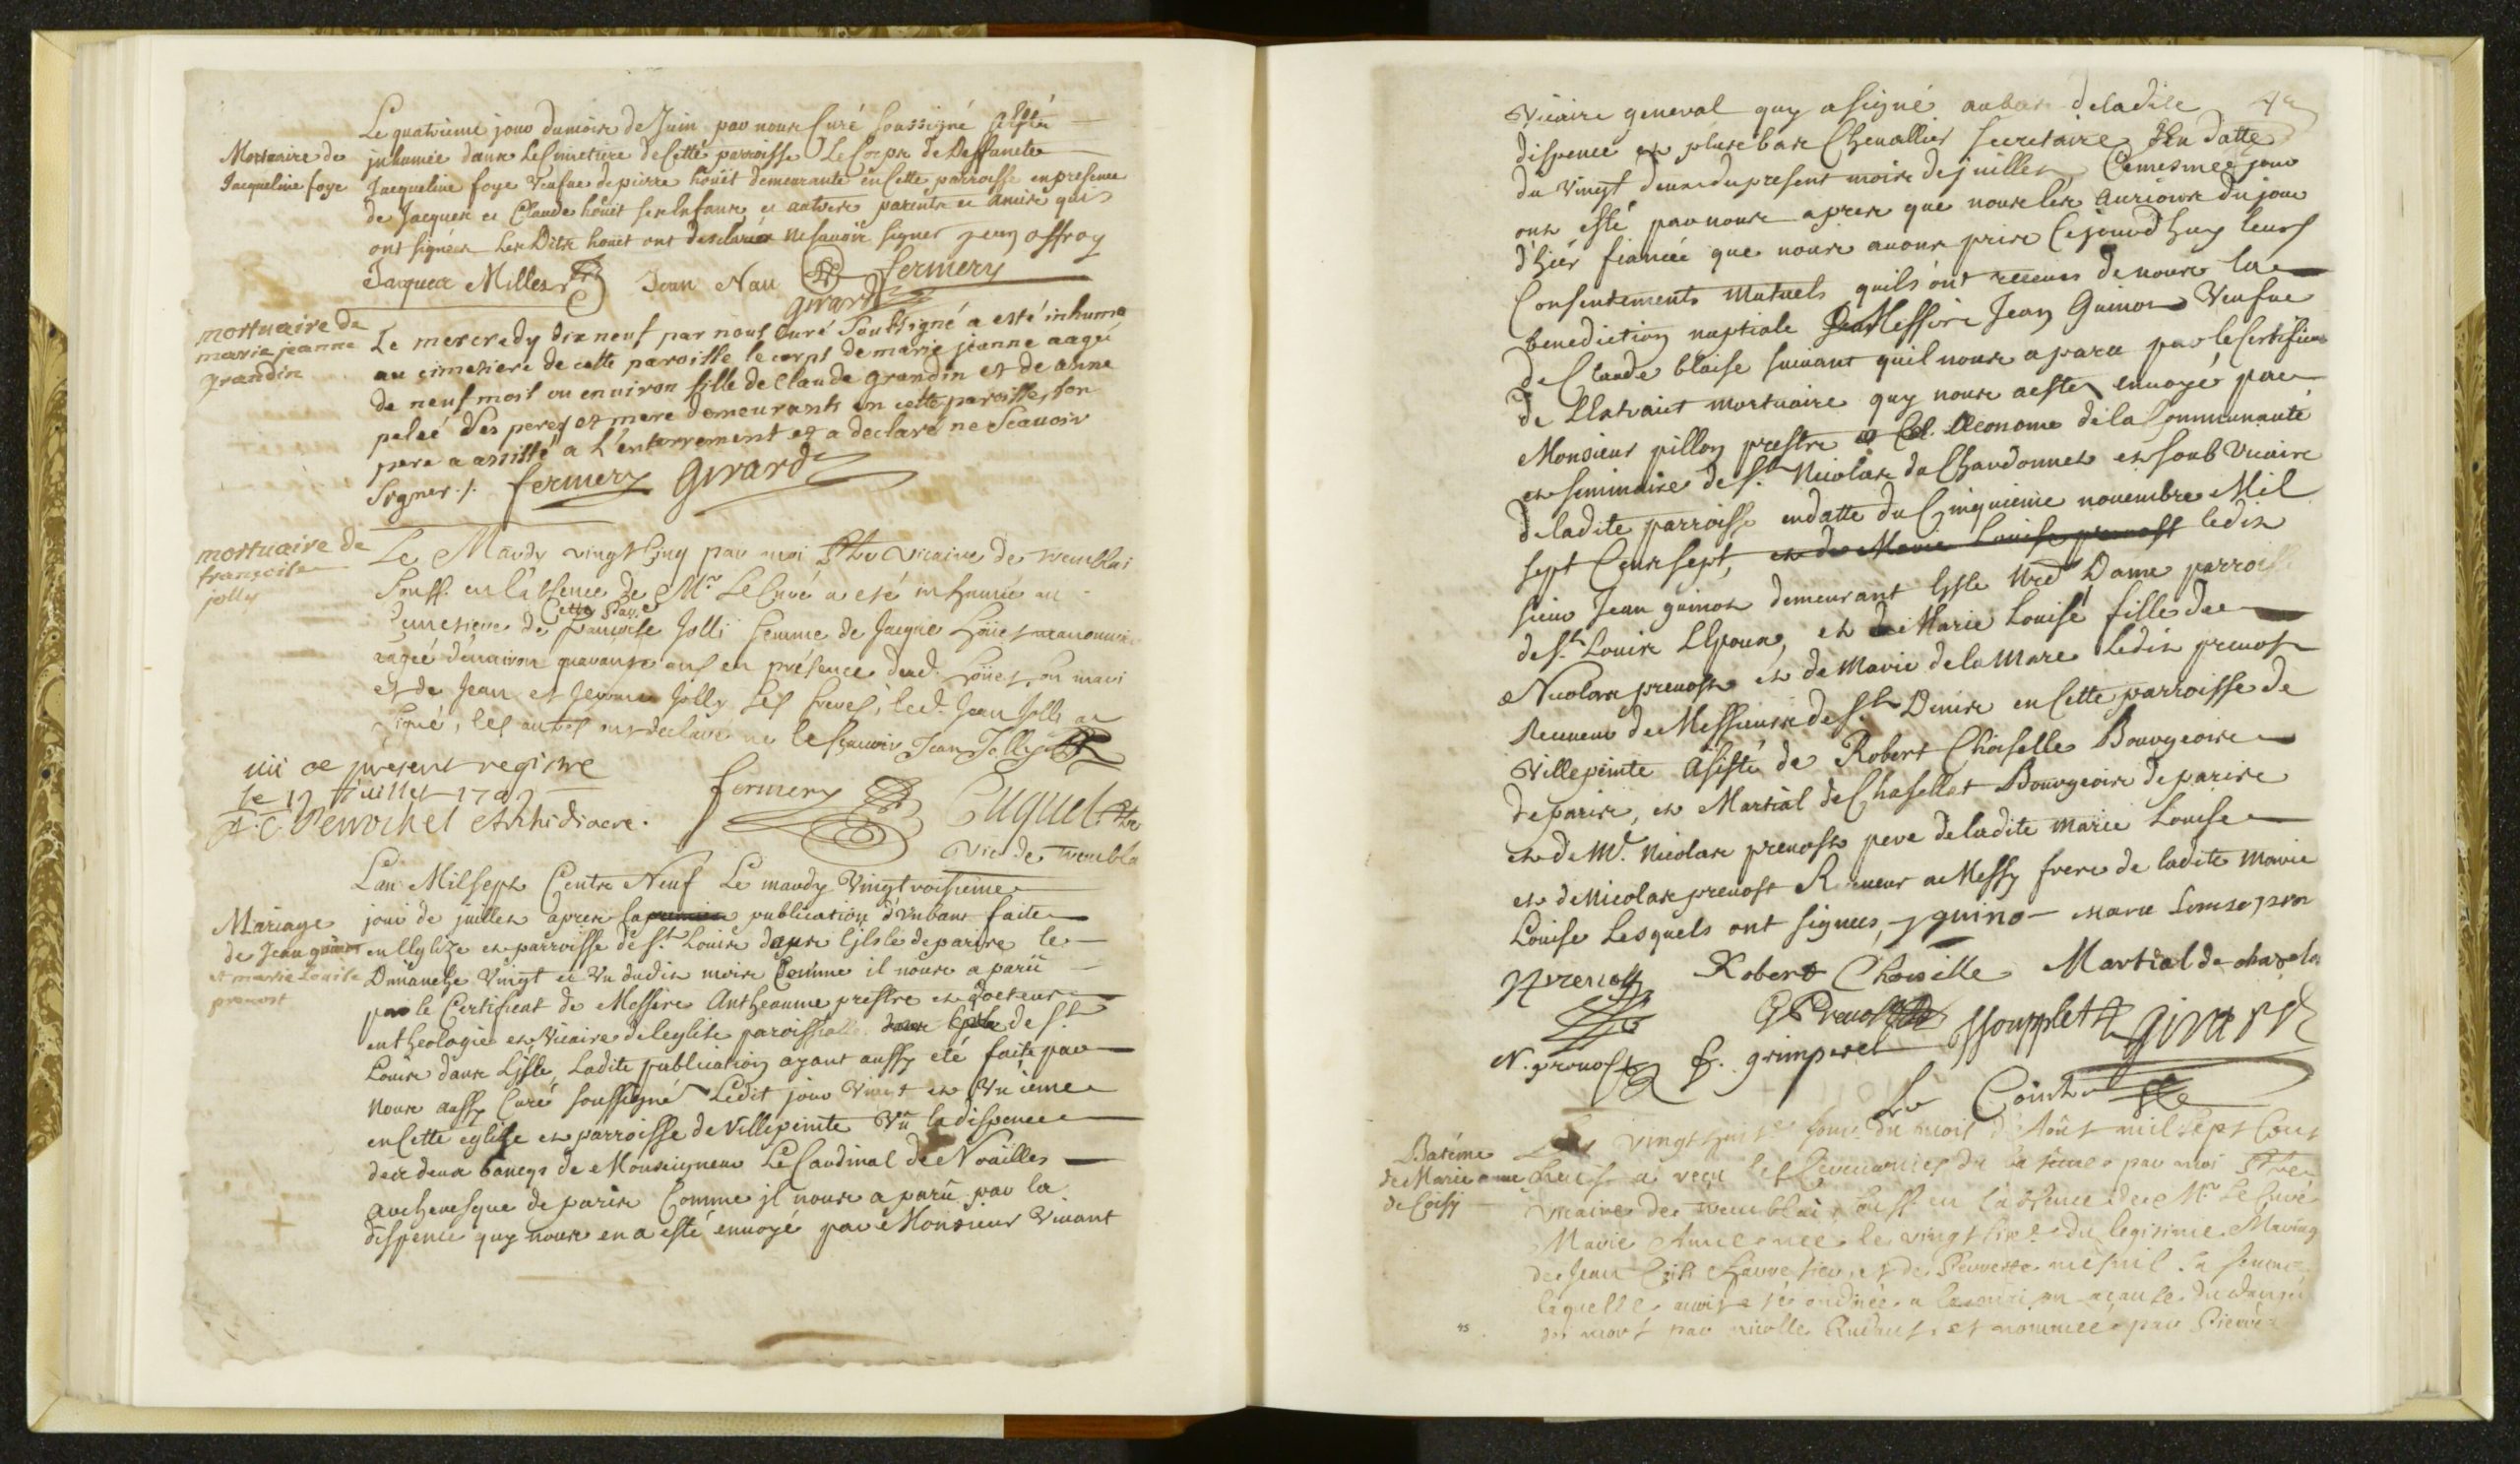 Le quatrieme jour du mois de Juin par nous Curé soussigné a esté
Mortuaire de
Jacqueline foye
inhumée dans le Cimetiere de Cette parroisse Le Corps de Deffuncte
Jacqueline foye Veufue de pierre hoüët demeurante en Cette parroisse en presence
de Jacques et Claude hoüët ses Enfans, et autres parents et amis qui
ont signées Les Dits hoüët ont desclarés ne sauoir signer jean offroy
Jaques Milles Jean Nau fermery
girard
mortuaire de
marie jeanne
grandin
Le mercredy dix neuf par nous Curé Soussigné a esté inhumé
au cimetiere de cette paroisse le corps de marie jeanne aagée
de neuf mois ou enuiron fille de Claude grandin et de anne
pelée Ses peres et mere demeurants en cette paroisse, son
pere a assisté a L'enterrement et a declaré ne Scauoir
Signer ./. fermery Girard
mortuaire de
françoise
jolly
Le Mardy vingt Cinq par moi Ptre vicaire de tremblai
Souss. en l'absence de Mr Le Curé a été inhumée au
Cimetiere de Cette Par.
françoise Jolli femme de Jacque hoüet
aagée d'enuiron quarante ans en présence dud. hoüet son mari
et de Jean et Jerome Jolly Ses freres, led. Jean Jolli a
signé, les autres ont declaré ne le sçauoir Jean Jolly
uü ce present registre
le 12 Juillet 1709
Perrochel Archidiacre.
fermery
Cuquel Ptre
vic de trembla
Lan Mil sept Cents Neuf Le mardy Vingt troisieme
Mariage
de Jean guinot
et marie Louise
preuost
jour de juillet apres la premiere publication d'un bans faite
en l'Eglize et parroisse de St. Louis dans l'isle de paris le
Dimanche Vingt et Vn dudit mois Comme il nous a parü
par le Certificat de Messire Antheaume prestre et docteur
en theologie et Vicaire de l'eglise paroissialle de St.
Louis dans l'isle, Ladite publication ayant aussy eté faite par
Nous aussy Curé soussigné Ledit jour Vingt et Vnieme
en Cette eglise et parroisse de Villepeinte Vü la dispence
des deux bancqs de Monseigneur Le Cardinal de Noailles
archeuesque de paris Comme il nous a parû par la
dispence quy nous en a esté enuoyé par Monsieur Viuant
Vicaire general quy a signé au bas de la dite
dispence et plus bas Cheuallier secretaire En datte
du Vingt deux du present mois de juillet Ce mesme jour
ont esté par nous apres que nous les aurions du jour
d'hier fiancée que nous auons pris Cejourd'huy leurs
Consentements mutuels quils ont receus de nous la
benediction nuptiale Messire Jean Guinot Veufue
de Claude blaise suiuant quil nous a paru par le Certificat
de l'Extrait mortuaire quy nous a esté enuoyé par
Monsieur pillon prestre Oeconome de la Communauté
et seminaire de St. Nicolas du Chardonnet et soub Vicaire
de ladite parroisse en datte du Cinquieme nouembre Mil
sept Cent sept, et de Marie Louise preuost ledit
sieur Jean guinot demeurant Isle Nre Dame parroisse
de St. Louis Epoux, et de Marie Louise fille de
Nicolas preuost et de Marie de la Mare Ledit preuost
Receueur de Messieurs de St. Denis en Cette parroisse de
Villepeinte Asisté de Robert Choiselle Bourgeois
de paris, et Martial de Chasellet Bourgeois de paris
et de Mr. Nicolas preuost pere de ladite Marie Louise
et de Nicolas preuost Receueur a Messy frere de ladite Marie
Louise Lesquels ont signées, J guino marie Louise preu
Robert Choiselle Martial de chazela
N. preuost f. grimperel Soupplet girard
Le Cointe
Batême
de Marie anne
de Coisy
Le vingt huit.e jour du mois d'Aôut mil sept Cent
neuf a reçu les Ceremonies du batême par moi Ptre
vicaire de tremblai souss. en l'absence de Mr Le Curé
Marie Anne née le vingt six.e du legitime Mariag
de Jean Coisi et de Perrette mesnil Sa femme
laquelle auoit été ondoiée a la maison a cause du danger
de mort par nicolle et nommée par Pierre
45